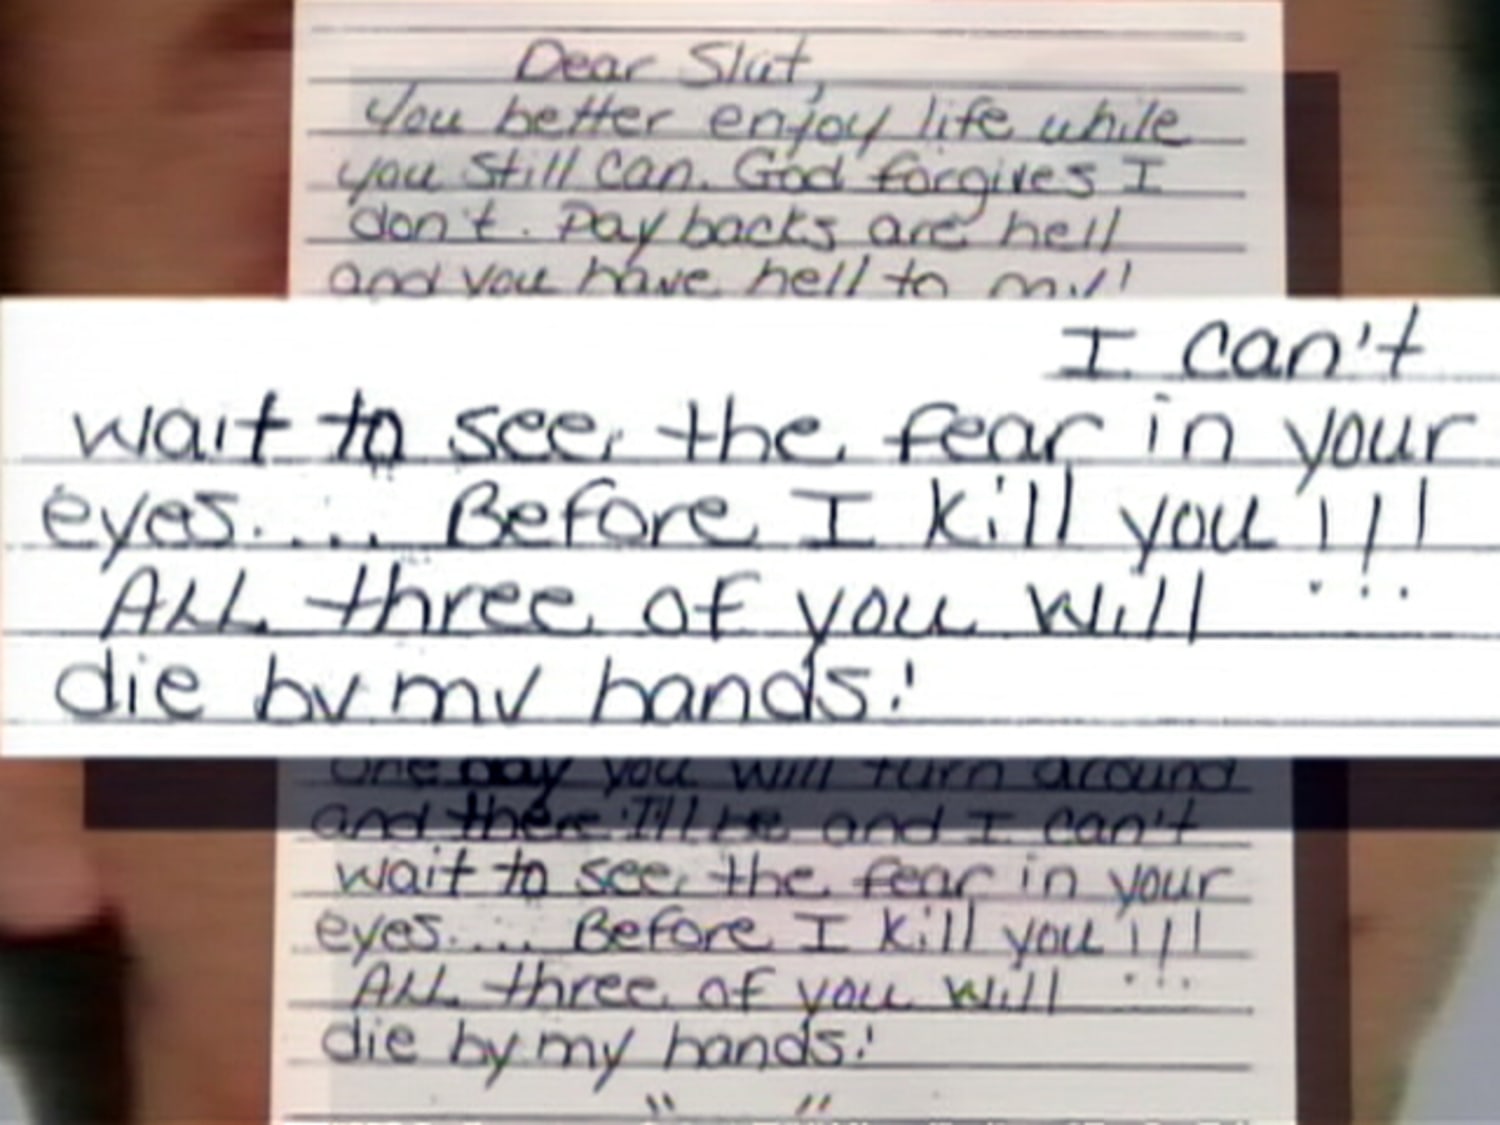 Dear Slut,
You better enjoy life while
you still can. God forgives I
don't. Pay backs are hell
and you have hell to
I can't
wait to see the fear in your
eyes.... Before I kill you!!!
ALL three of you will
die by my hands!
One day you will turn around
and there I'll be and I can't
wait to see the fear in your
eyes.... Before I kill you!!!
ALL three of you will
die by my hands!